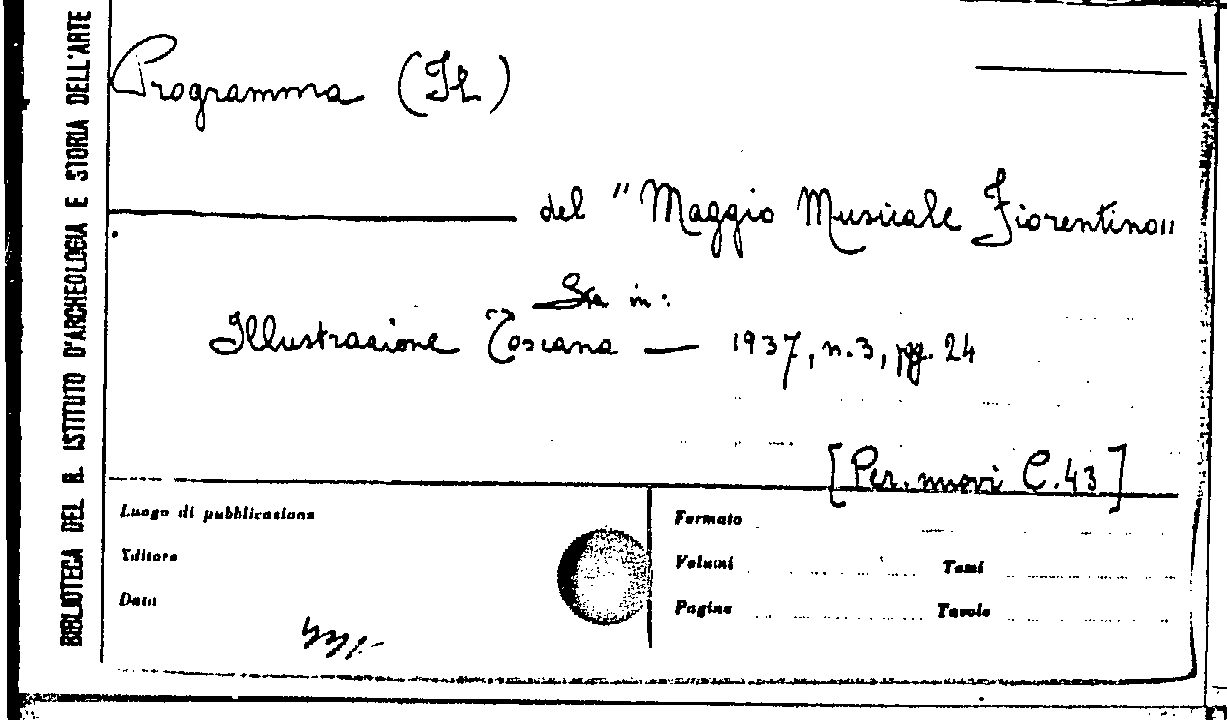 BIBLIOTECA DEL R. ISTITUTO D'ARCHEOLOGIA E STORIA DELL'ARTE
Programma (Il)
del "Maggio Musicale Fiorentino"
Sta in:
Illustrazione Toscana — 1937, n.3, pg. 24
[Per. nuovi C.43]
Luogo di pubblicazione
Editore
Data
Formato
Volumi Tomi
Pagine Tavole